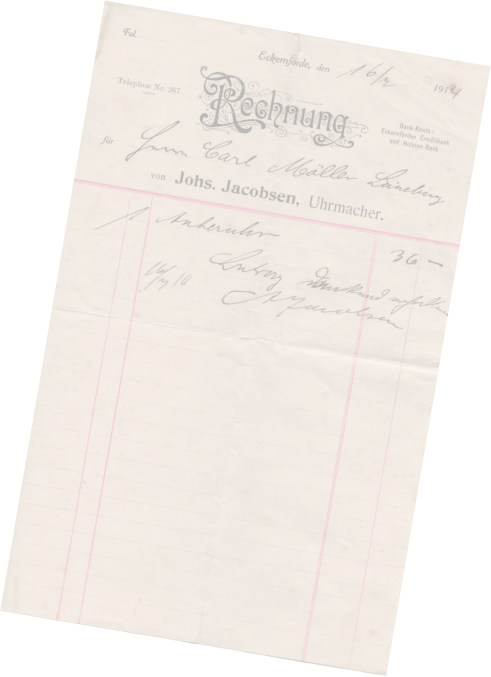 Fol.
Eckernförde, den 16/2 1914
Telephon Nr. 267
Rechnung
Bank-Konto:
Eckernförder Creditbank
und Noten-Bank
für Herrn Carl Möller Lüneburg
von Johs. Jacobsen, Uhrmacher.
1 Ankeruhr 36 –
Betrag dankend erhalten
16/2 14 Jacobsen